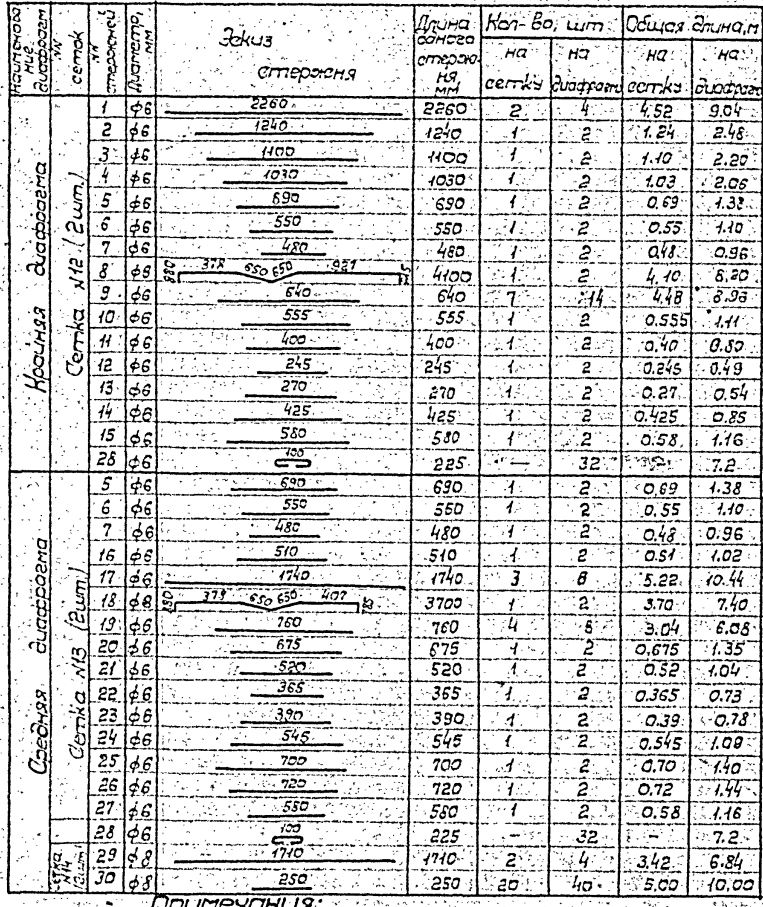 Наименование диафрагм | NN сеток | NN стержней | Диаметр, мм | Эскиз стержня | Длина одного стержня, мм | Кол-во, шт. на сетку | Кол-во, шт. на диафрагм | Общая длина, м на сетку | Общая длина, м на диафрагм
Крайняя диафрагма
Сетка N12 (2шт.)
1 ϕ6 2260 2260 2 4 4.52 9.04
2 ϕ6 1240 1240 1 2 1.24 2.48
3 ϕ6 1100 1100 1 2 1.10 2.20
4 ϕ6 1030 1030 1 2 1.03 2.06
5 ϕ6 690 690 1 2 0.69 1.38
6 ϕ6 550 550 1 2 0.55 1.10
7 ϕ6 480 480 1 2 0.48 0.96
8 ϕ8 378 650 650 927 4100 1 2 4.10 8.20
9 ϕ6 640 640 7 14 4.48 8.96
10 ϕ6 555 555 1 2 0.555 1.11
11 ϕ6 400 400 1 2 0.40 0.80
12 ϕ6 245 245 1 2 0.245 0.49
13 ϕ6 270 270 1 2 0.27 0.54
14 ϕ6 425 425 1 2 0.425 0.85
15 ϕ6 580 580 1 2 0.58 1.16
28 ϕ6 100 225 — 32 7.2
Средняя диафрагма
Сетка N13 (2шт.)
5 ϕ6 690 690 1 2 0.69 1.38
6 ϕ6 550 550 1 2 0.55 1.10
7 ϕ6 480 480 1 2 0.48 0.96
16 ϕ6 510 510 1 2 0.51 1.02
17 ϕ6 1740 1740 3 6 5.22 10.44
18 ϕ8 378 650 650 407 3700 1 2 3.70 7.40
19 ϕ6 760 760 4 8 3.04 6.08
20 ϕ6 675 675 1 2 0.675 1.35
21 ϕ6 520 520 1 2 0.52 1.04
22 ϕ6 365 365 1 2 0.365 0.73
23 ϕ6 390 390 1 2 0.39 0.78
24 ϕ6 545 545 1 2 0.545 1.09
25 ϕ6 700 700 1 2 0.70 1.40
26 ϕ6 720 720 1 2 0.72 1.44
27 ϕ6 580 580 1 2 0.58 1.16
28 ϕ6 100 225 - 32 - 7.2
Сетка N14 (2шт.)
29 ϕ8 1710 1710 2 4 3.42 6.84
30 ϕ8 250 250 20 40 5.00 10.00
Примечания: